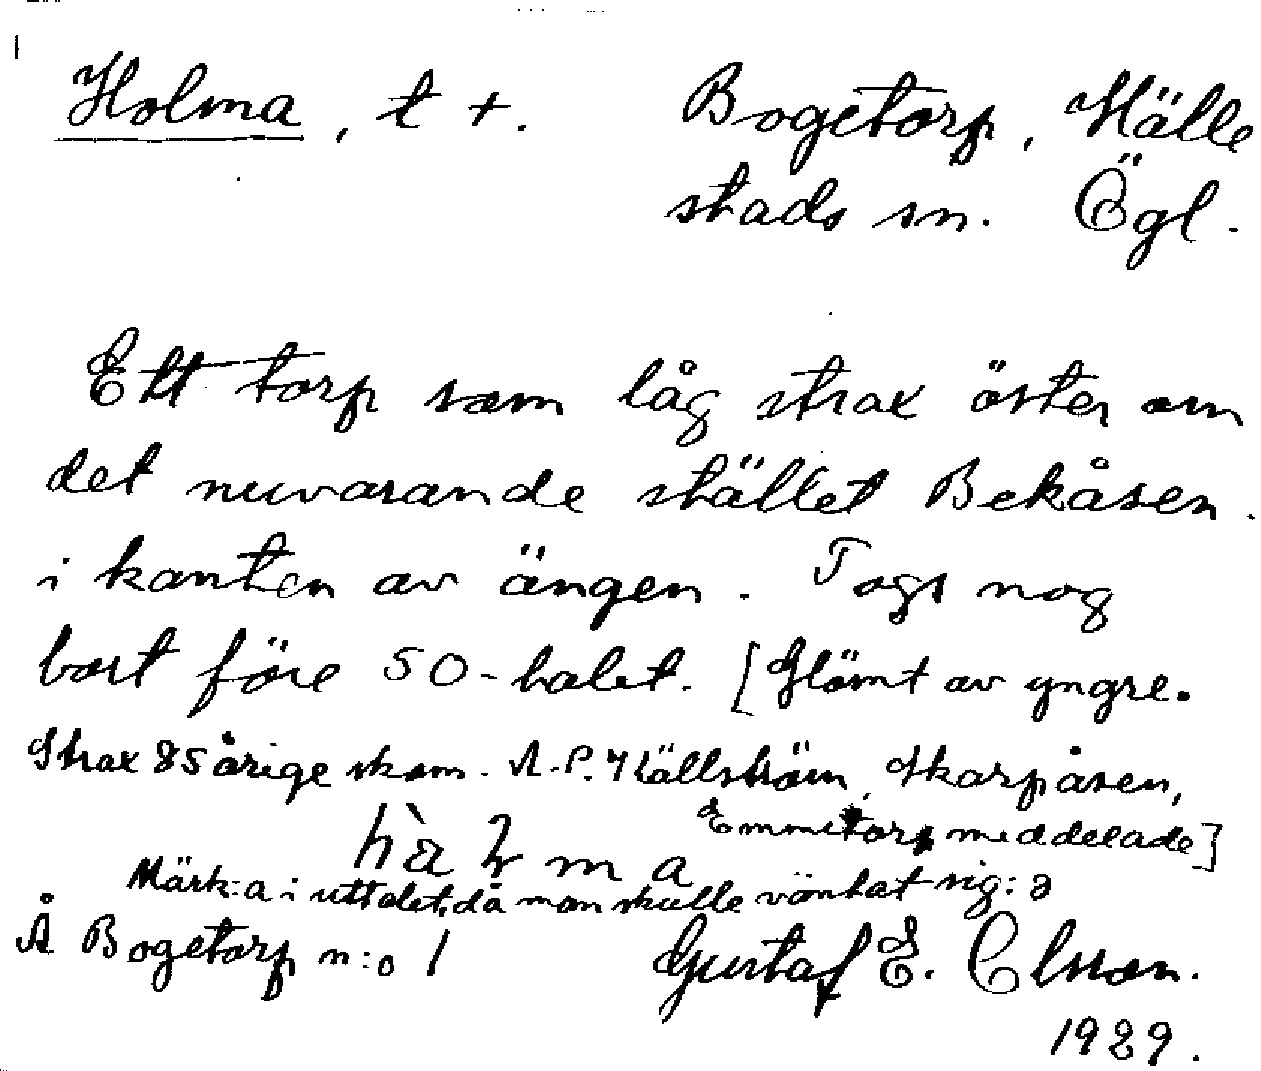 Holma, t +. Bogetorp, Hälle
stads sn. Ögl.
Ett torp som låg strax öster om
det nuvarande stället Bekåsen.
i kanten av ängen. Togs nog
bort före 50-talet. [Glömt av yngre.
Strax 85 årige skom. A.P. Källström, Skarpåsen,
Emmetorp meddelade]
Märk: a i uttalet, då man skulle väntat sig: ə
Å Bogetorp n:o 1 Gustaf E. Olsson.
1929.